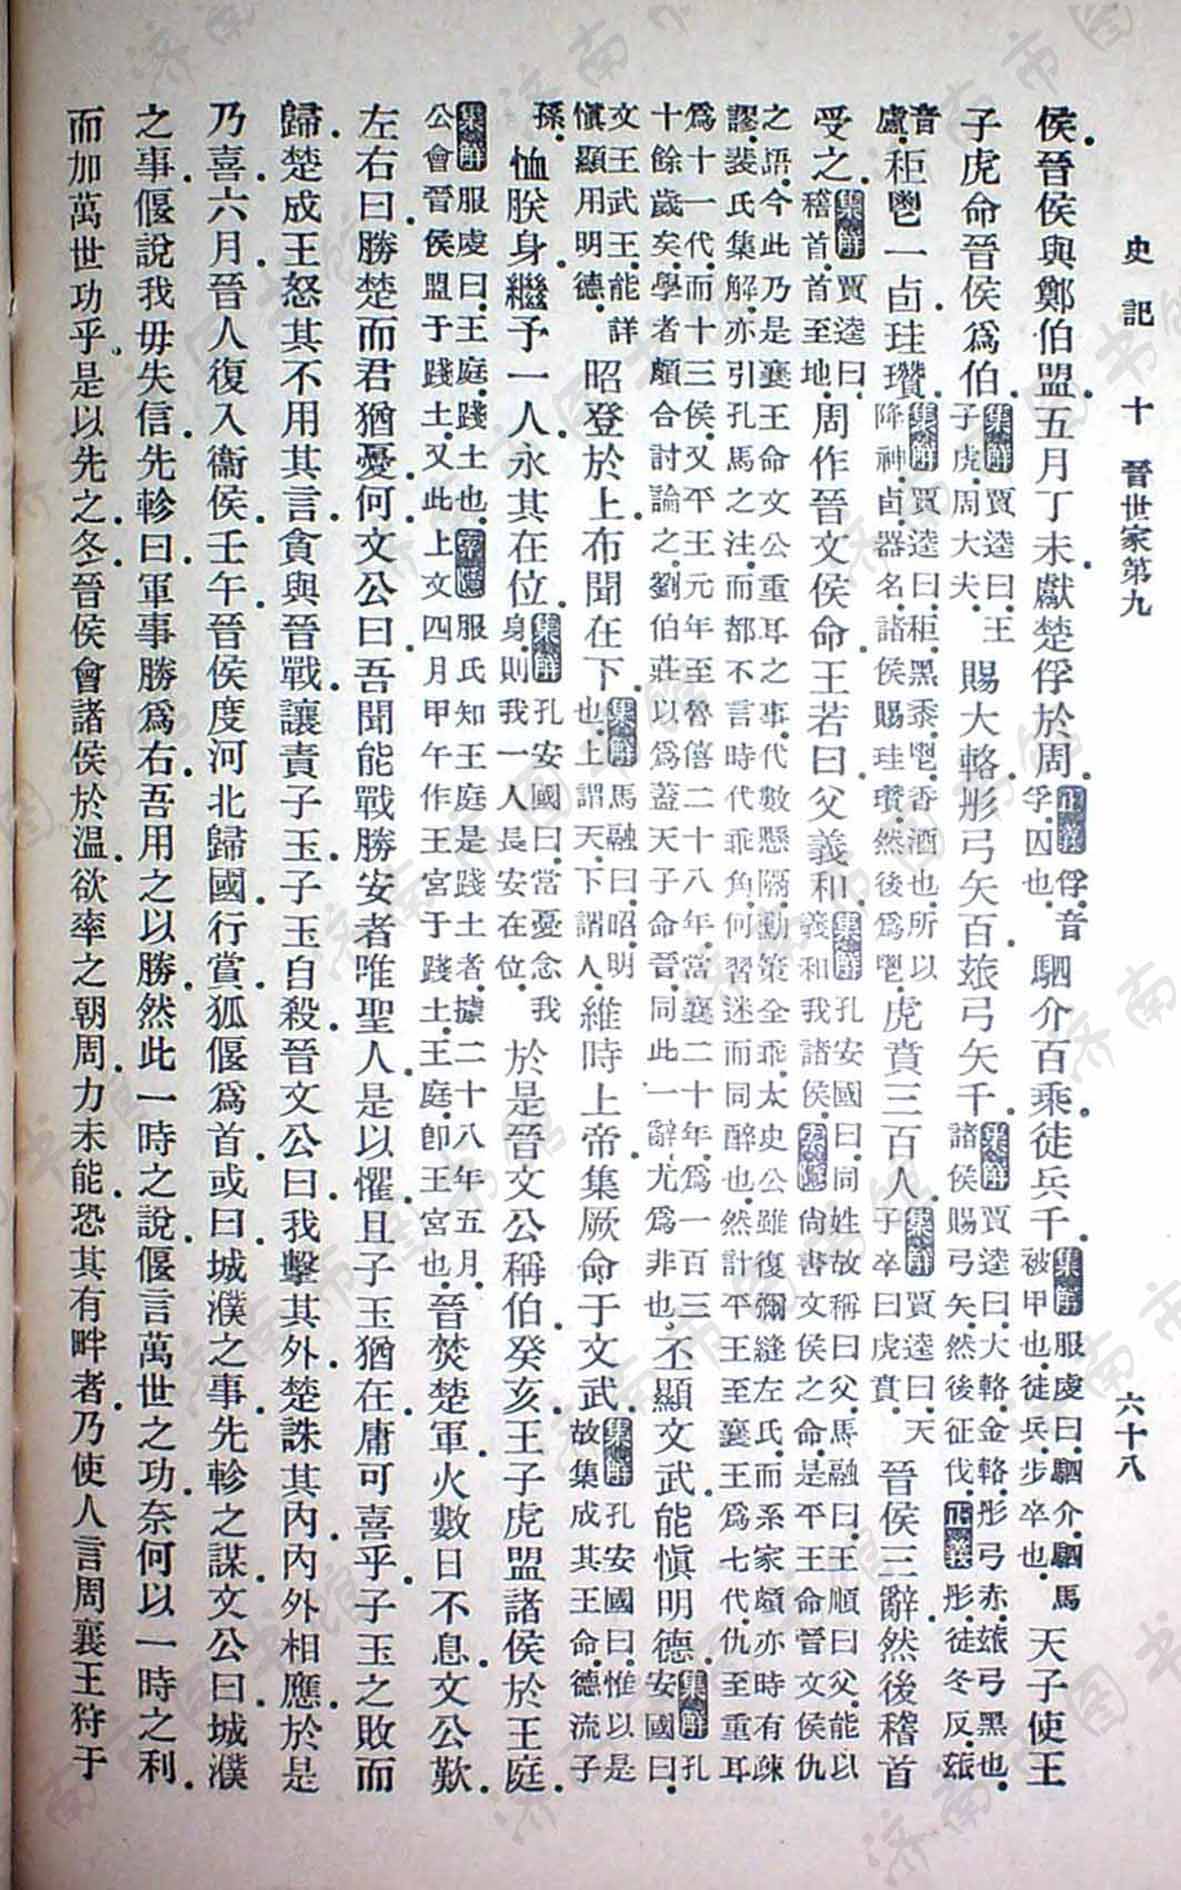 史記十 晉世家第九 六十八
侯.晉侯與鄭伯盟.五月丁未.獻楚俘於周.正義俘.音孚.囚也.駟介百乘.徒兵千.集解服虔曰.駟介.駟馬被甲也.徒兵.步卒也.天子使王
子虎命晉侯爲伯.集解賈逵曰.王子虎.周大夫.賜大輅.彤弓矢百.玈弓矢千.集解賈逵曰.大輅.金輅.彤弓赤.玈弓黑也.諸侯賜弓矢.然後征伐.正義彤.徒冬反.玈
音盧.秬鬯一卣.珪瓚.集解賈逵曰.秬.黑黍.鬯.香酒也.所以降神.卣.器名.諸侯賜珪瓚.然後爲鬯.虎賁三百人.集解賈逵曰.天子卒曰虎賁.晉侯三辭.然後稽首
受之.集解賈逵曰.稽首.首至地.周作晉文侯命.王若曰.父義和.集解孔安國曰.同姓故稱曰父.馬融曰.王順曰父.能以義和我諸侯.索隱尙書文侯之命.是平王命晉文侯仇
之語.今此乃是襄王命文公重耳之事.代數懸隔.勳策全乖.太史公雖復彌縫左氏.而系家頗亦時有疎謬.裴氏集解.亦引孔馬之注.而都不言時代乖角.何習迷而同醉也.然計平王至襄王爲七代.仇至重耳
爲十一代.而十三侯.又平王元年至魯僖二十八年.當襄二十年.爲一百三十餘歲矣.學者頗合討論之.劉伯莊以爲蓋天子命晉.同此一辭.尤爲非也.丕顯文武.能愼明德.集解孔安國曰.
文王武王.能詳愼顯用明德.昭登於上.布聞在下.集解馬融曰.昭.明也.上謂天.下謂人.維時上帝.集厥命于文武.集解孔安國曰.惟以是故集成其王命.德流子
孫.恤朕身.繼予一人.永其在位.集解孔安國曰.當憂念我身.則我一人長安在位.於是晉文公稱伯.癸亥.王子虎盟諸侯於王庭.
集解服虔曰.王庭.踐土也.索隱服氏知王庭是踐土者.據二十八年五月.公會晉侯盟于踐土.又此上文四月甲午作王宮于踐土.王庭.卽王宮也.晉焚楚軍.火數日不息.文公歎.
左右曰.勝楚而君猶憂.何.文公曰.吾聞能戰勝安者唯聖人.是以懼.且子玉猶在.庸可喜乎.子玉之敗而
歸.楚成王怒其不用其言.貪與晉戰.讓責子玉.子玉自殺.晉文公曰.我擊其外.楚誅其內.內外相應.於是
乃喜.六月.晉人復入衞侯.壬午.晉侯度河北歸國.行賞.狐偃爲首.或曰.城濮之事.先軫之謀.文公曰.城濮
之事.偃說我毋失信.先軫曰.軍事勝爲右.吾用之以勝.然此一時之說.偃言萬世之功.奈何以一時之利.
而加萬世功乎.是以先之.冬.晉侯會諸侯於溫.欲率之朝周.力未能.恐其有畔者.乃使人言周襄王狩于